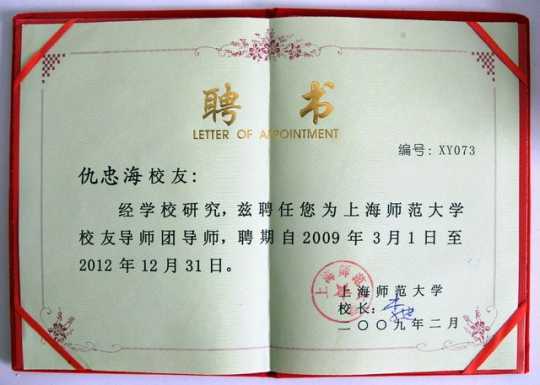 聘书
LETTER OF APPOINTMENT
编号: XY073
仇忠海校友:
经学校研究,兹聘任您为上海师范大学
校友导师团导师,聘期自2009年3月1日至
2012年12月31日。
上海师范大学
校长:
二〇〇九年二月